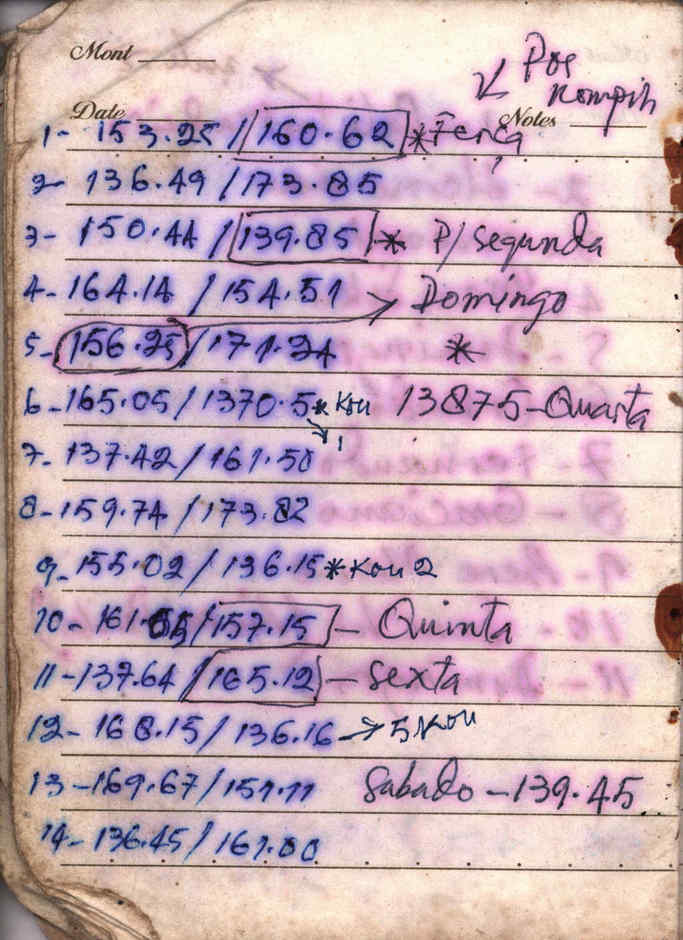 Mont
Pos
Date
Notes
1- 153.25 / 160.62 * Terça
2- 136.49 / 173.85
3- 150.44 / 139.85 * P/ segunda
4- 164.14 / 154.51 → Domingo
5- 156.25 / 171.24 *
6- 165.05 / 1370.5 * Kou 13875-Quarta
7- 137.42 / 161.50
8- 159.74 / 173.82
9- 155.02 / 136.15 * Kou 2
10- / 157.15 - Quinta
11- 137.64 / 165.12 - sexta
12- 168.15 / 136.16 → 5 Kou
13- 169.67 / Sabado - 139.45
14- 136.45 /